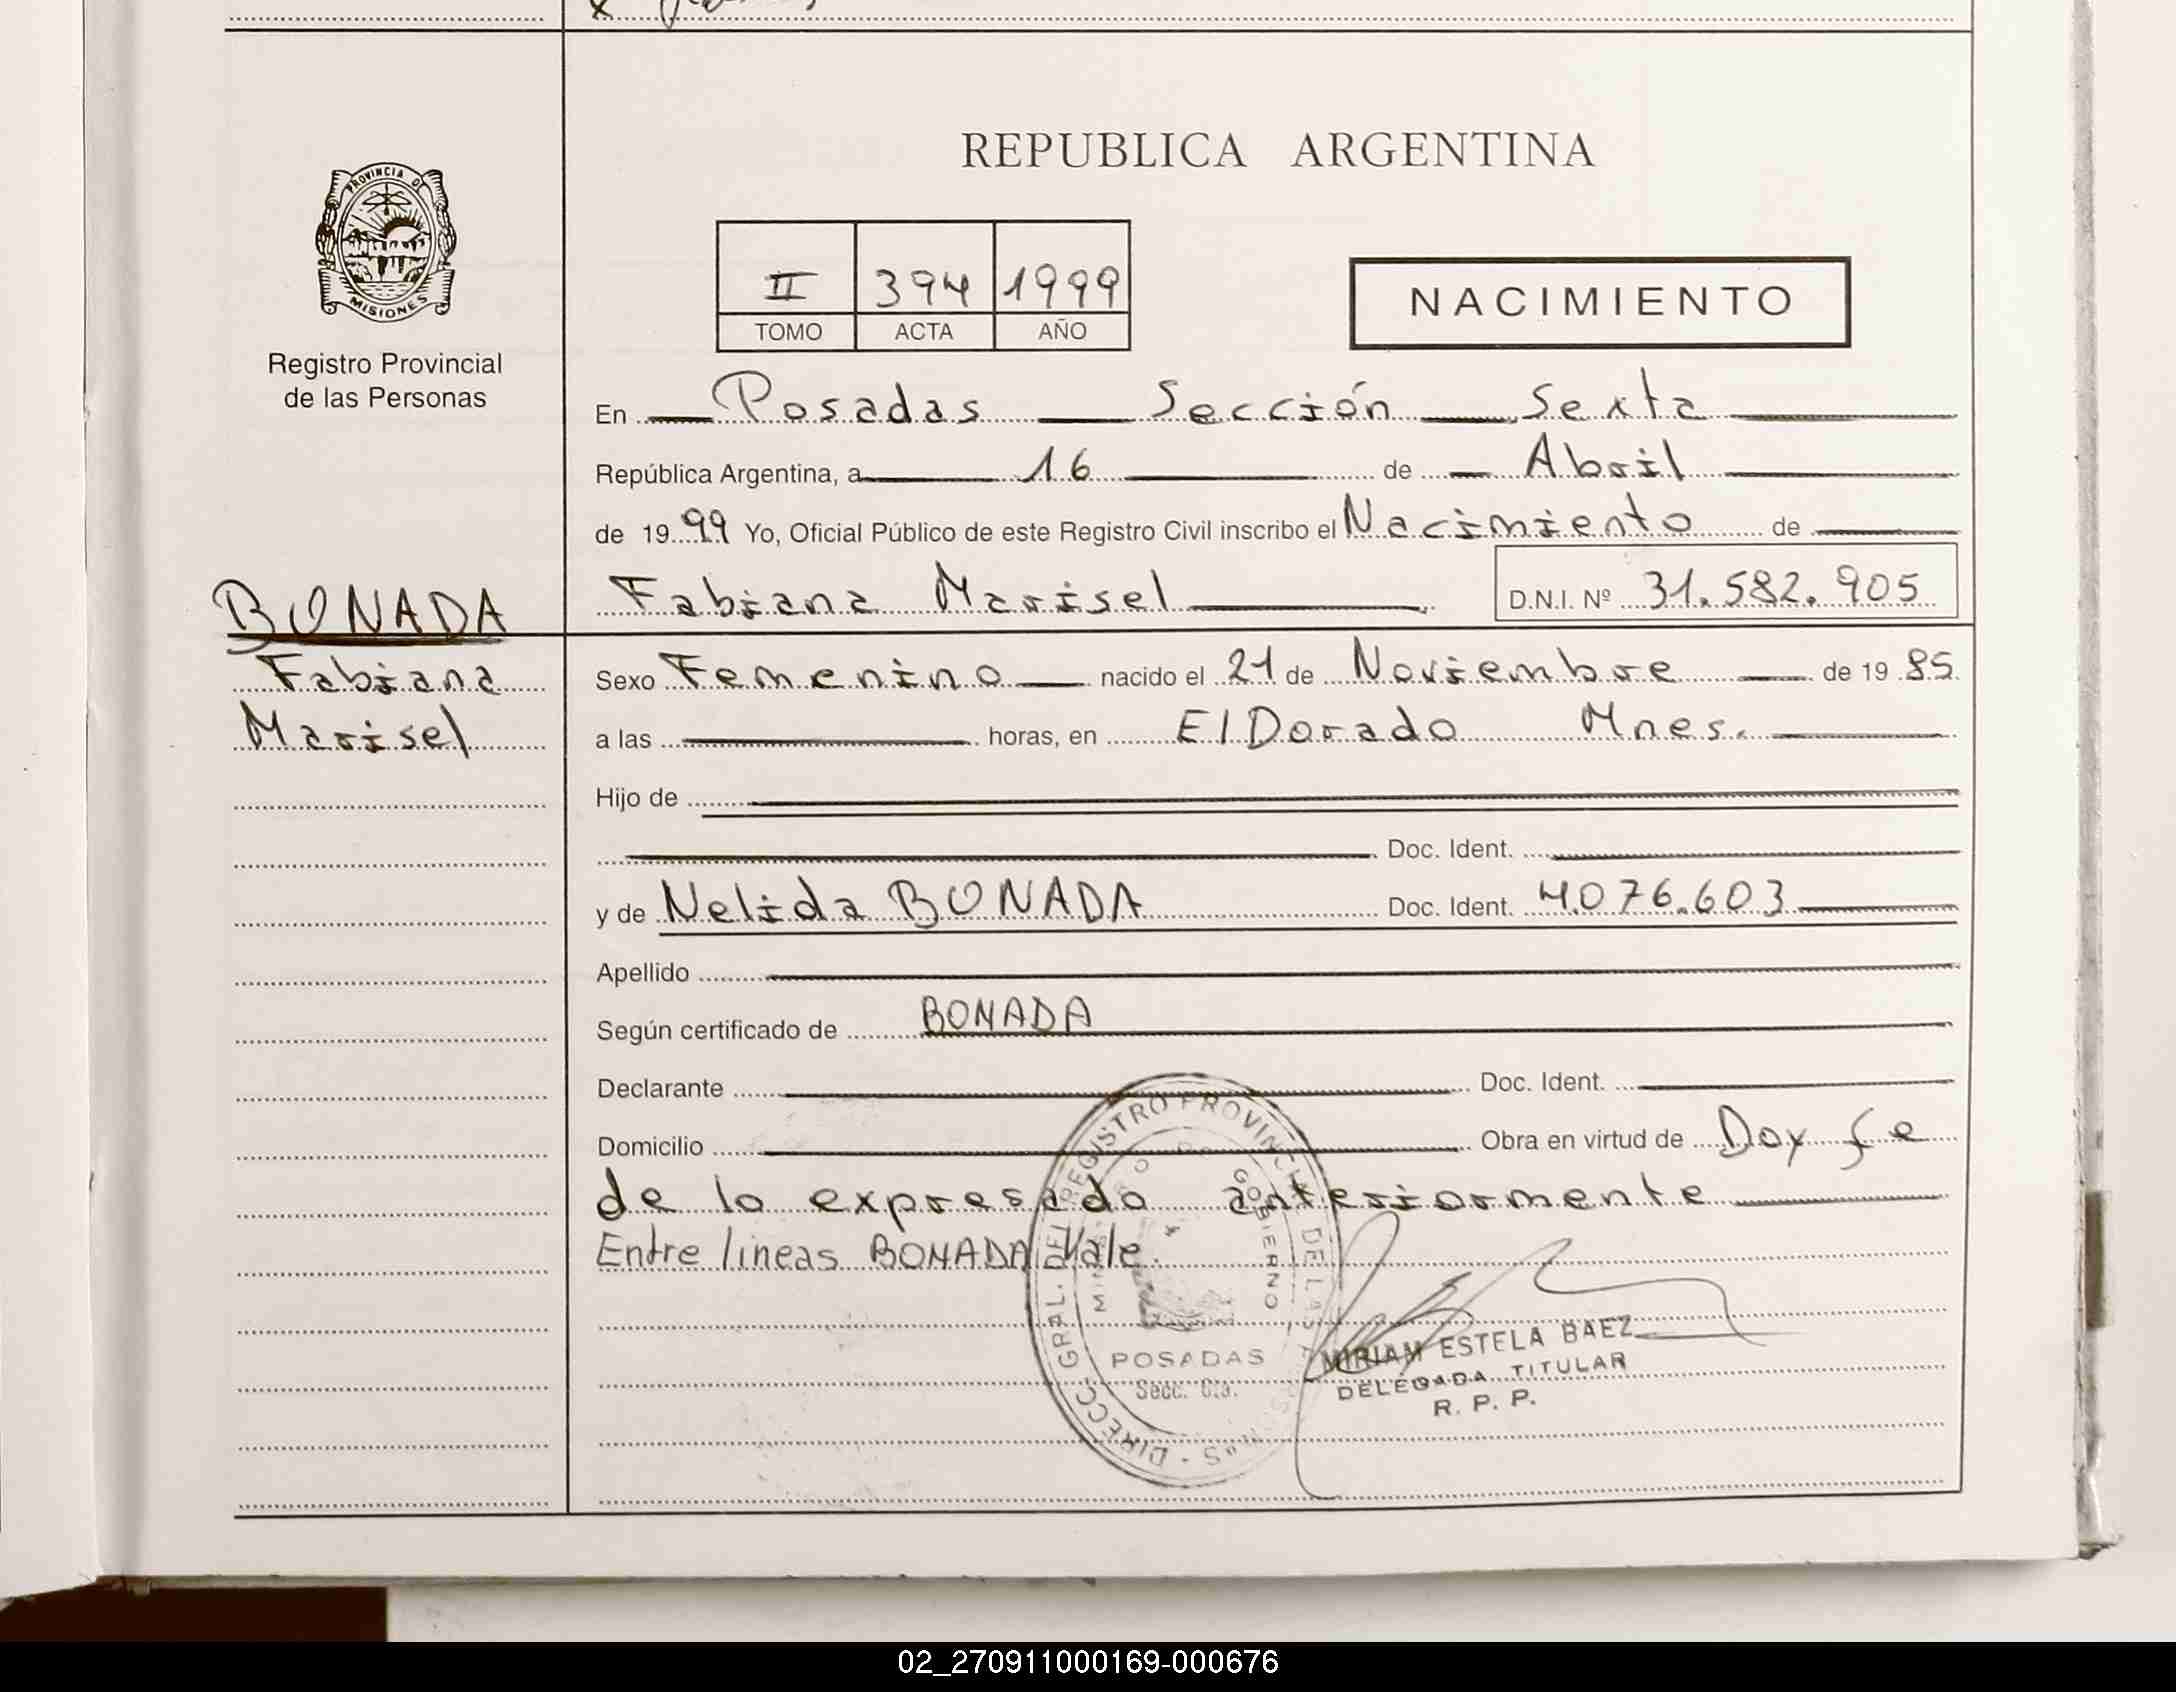 REPUBLICA ARGENTINA
PROVINCIA DE
MISIONES
Registro Provincial
de las Personas
II 394 1999
TOMO ACTA AÑO
NACIMIENTO
En Posadas Sección Sexta
República Argentina, a 16 de Abril
de 1999 Yo, Oficial Público de este Registro Civil inscribo el Nacimiento de
Fabiana Marisel D.N.I. Nº 31.582.905
BONADA
Fabiana
Marisel
Sexo Femenino nacido el 21 de Noviembre de 1985.
a las horas, en El Dorado Mnes.
Hijo de
Doc. Ident.
y de Nelida BONADA Doc. Ident. 4.076.603
Apellido
Según certificado de BONADA
Declarante Doc. Ident.
Domicilio Obra en virtud de Doy fe
de lo expresado anteriormente
Entre lineas BONADA Vale.
DIRECC. GRAL. DEL REGISTRO PROVINCIAL DE LAS
GOBIERNO
POSADAS
Secc. 6ta.
MIRIAM ESTELA BAEZ
DELEGADA TITULAR
R. P. P.
02_270911000169-000676